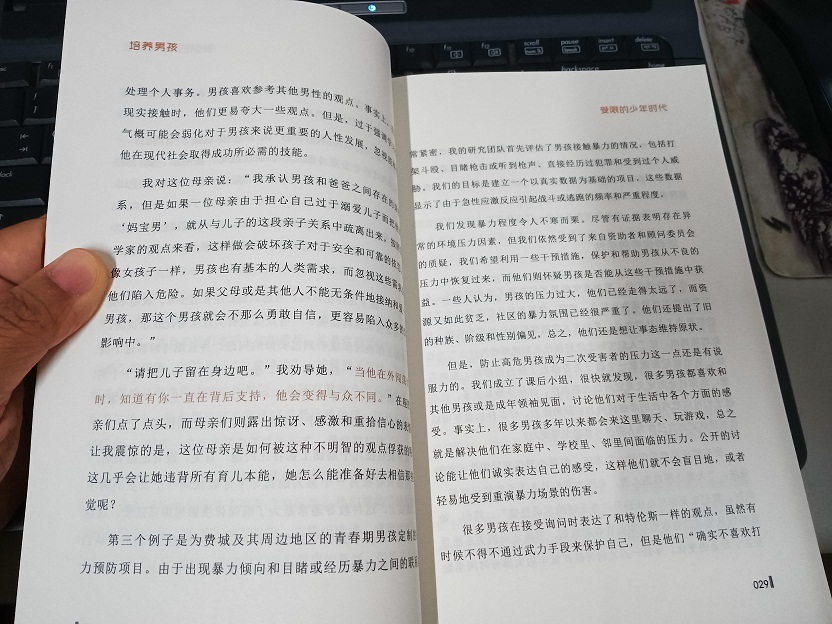 培养男孩
处理个人事务。男孩喜欢参考其他男性的观点。事实上，
现实接触时，他们更易夸大一些观点。但是，过于强调
气概可能会弱化对于男孩来说更重要的人性发展，忽视
他在现代社会取得成功所必需的技能。
我对这位母亲说：“我承认男孩和爸爸之间存在的
系，但是如果一位母亲由于担心自己过于溺爱儿子而把
‘妈宝男’，就从与儿子的这段亲子关系中疏离出来，
学家的观点来看，这样做会破坏孩子对于安全和可靠的
像女孩子一样，男孩也有基本的人类需求，而忽视这些需求
他们陷入危险。如果父母或是其他人不能无条件地接纳和
男孩，那这个男孩就会不那么勇敢自信，更容易陷入众多的
影响中。”
“请把儿子留在身边吧。”我劝导她，“当他在外闯荡
时，知道有你一直在背后支持，他会变得与众不同。”在
亲们点了点头，而母亲们则露出惊讶、感激和重拾信心的
让我震惊的是，这位母亲是如何被这种不明智的观点俘获的
这几乎会让她违背所有育儿本能，她怎么能准备好去相信那些
觉呢？
第三个例子是为费城及其周边地区的青春期男孩定制的
力预防项目。由于出现暴力倾向和目睹或经历暴力之间的联系
受限的少年时代
常紧密，我的研究团队首先评估了男孩接触暴力的情况，包括打
架斗殴、目睹枪击或听到枪声、直接经历过犯罪和受到过个人威
胁。我们的目标是建立一个以真实数据为基础的项目，这些数据
显示了由于急性应激反应引起战斗或逃跑的频率和严重程度。
我们发现暴力程度令人不寒而栗。尽管有证据表明存在异
常的环境压力因素，但我们依然受到了来自资助者和顾问委员会
的质疑，我们希望利用一些干预措施，保护和帮助男孩从不良的
压力中恢复过来，而他们则怀疑男孩是否能从这些干预措施中获
益。一些人认为，男孩的压力过大，他们已经走得太远了，而资
源又如此贫乏，社区的暴力氛围已经很严重了。他们还提出了旧
的种族、阶级和性别偏见，总之，他们还是想让事态维持原状。
但是，防止高危男孩成为二次受害者的压力这一点还是有说
服力的。我们成立了课后小组，很快就发现，很多男孩都喜欢和
其他男孩或是成年领袖见面，讨论他们对于生活中各个方面的感
受。事实上，很多男孩多年以来都会来这里聊天、玩游戏，总之
就是解决他们在家庭中、学校里、邻里间面临的压力。公开的讨
论能让他们诚实表达自己的感受，这样他们就不会盲目地，或者
轻易地受到重演暴力场景的伤害。
很多男孩在接受询问时表达了和特伦斯一样的观点，虽然有
时候不得不通过武力手段来保护自己，但是他们“确实不喜欢打
029